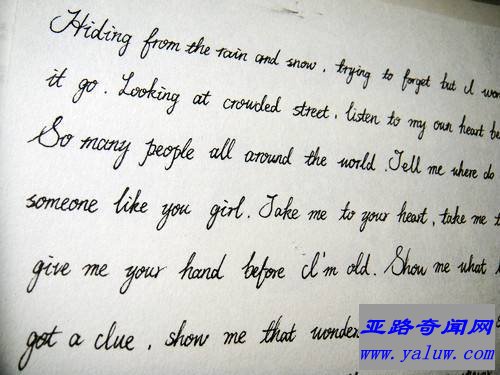 Hiding from the rain and snow, trying to forget but I won
it go. Looking at crowded street, listen to my own heart be
So many people all around the world. Tell me where do
someone like you girl. Take me to your heart, take me t
give me your hand before I'm old. Show me what
got a clue, show me that wonder
亚路奇闻网
www.yaluw.com